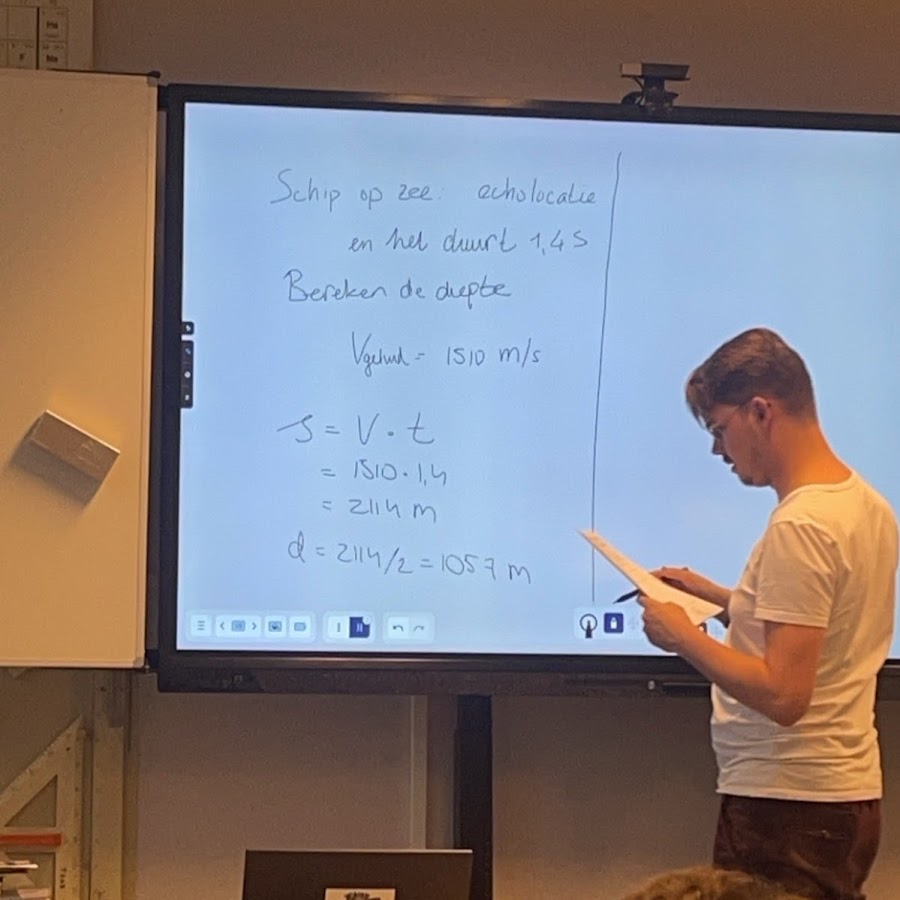 Schip op zee: echolocatie
en het duurt 1,4 s
Bereken de diepte
Vgeluid = 1510 m/s
s = V · t
= 1510 · 1,4
= 2114 m
d = 2114/2 = 1057 m